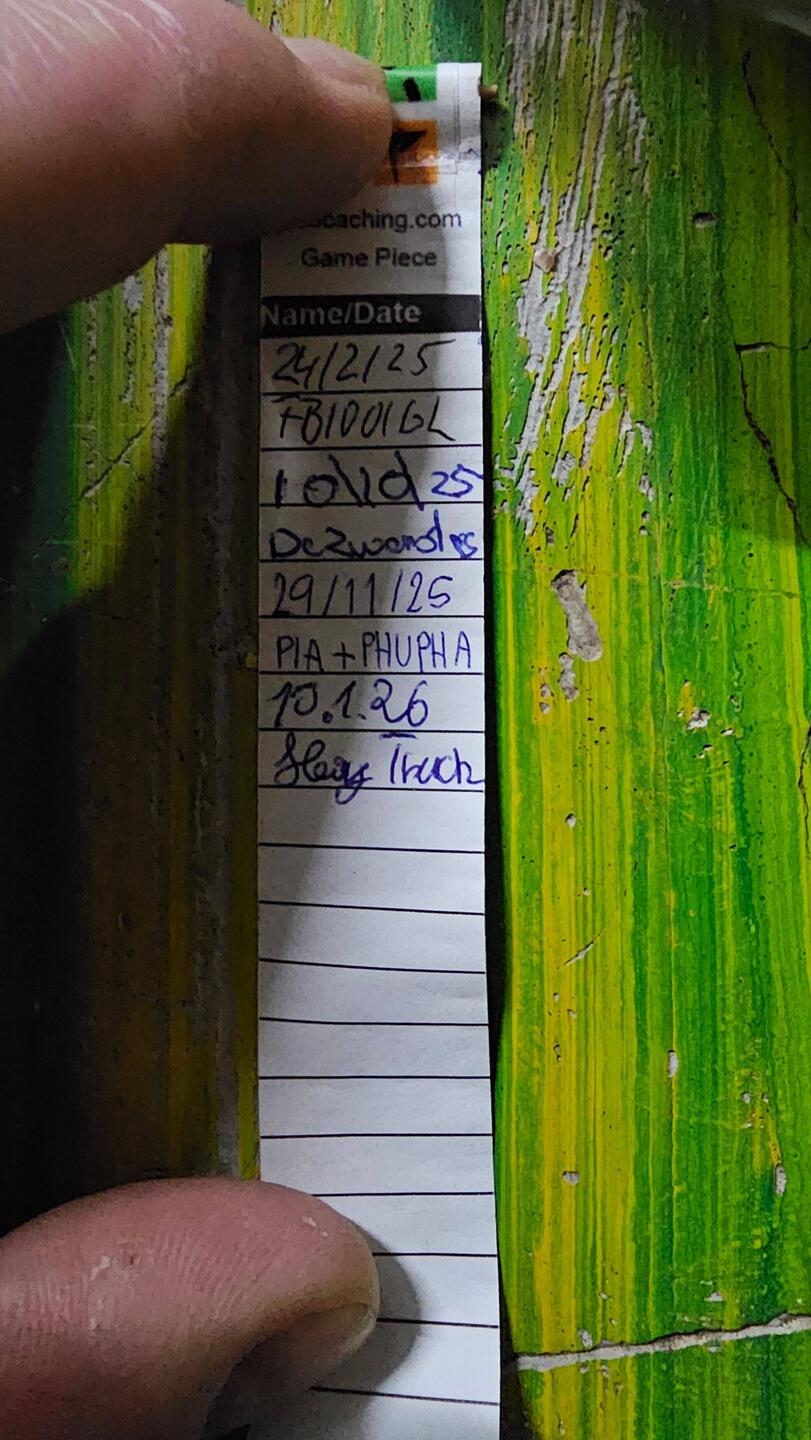 caching.com
Game Piece
Name/Date
24/2/25
FB1001GL
10\10\25
29/11/25
PIA + PHUPHA
10.1.26